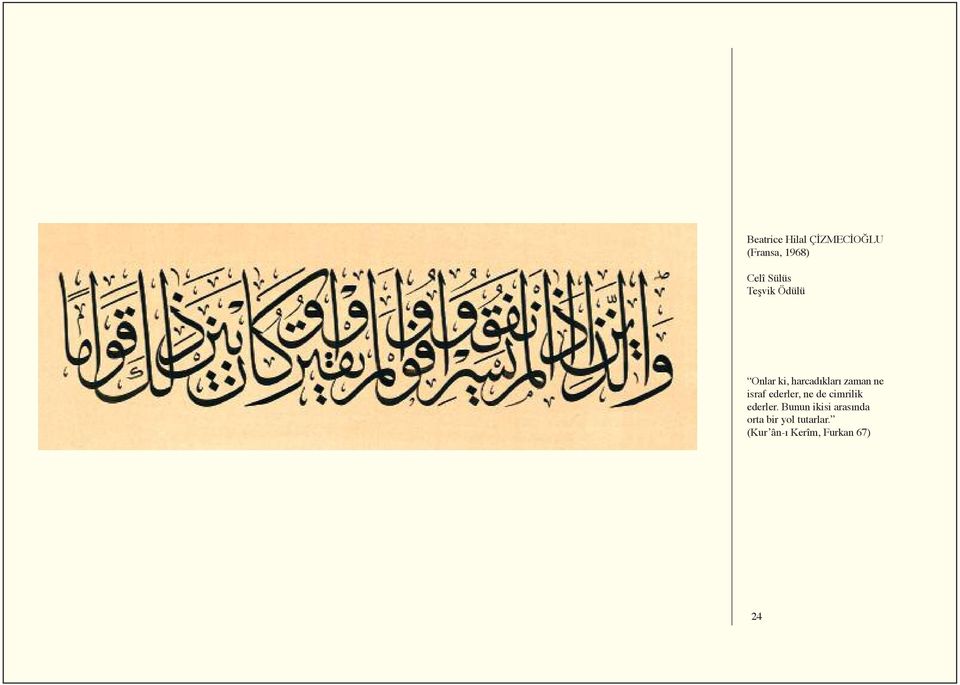 والذين إذا أنفقوا لم يسرفوا ولم يقتروا وكان بين ذلك قواما
Beatrice Hilal ÇİZMECİOĞLU
(Fransa, 1968)
Celî Sülüs
Teşvik Ödülü
“Onlar ki, harcadıkları zaman ne
israf ederler, ne de cimrilik
ederler. Bunun ikisi arasında
orta bir yol tutarlar.”
(Kur’ân-ı Kerîm, Furkan 67)
24